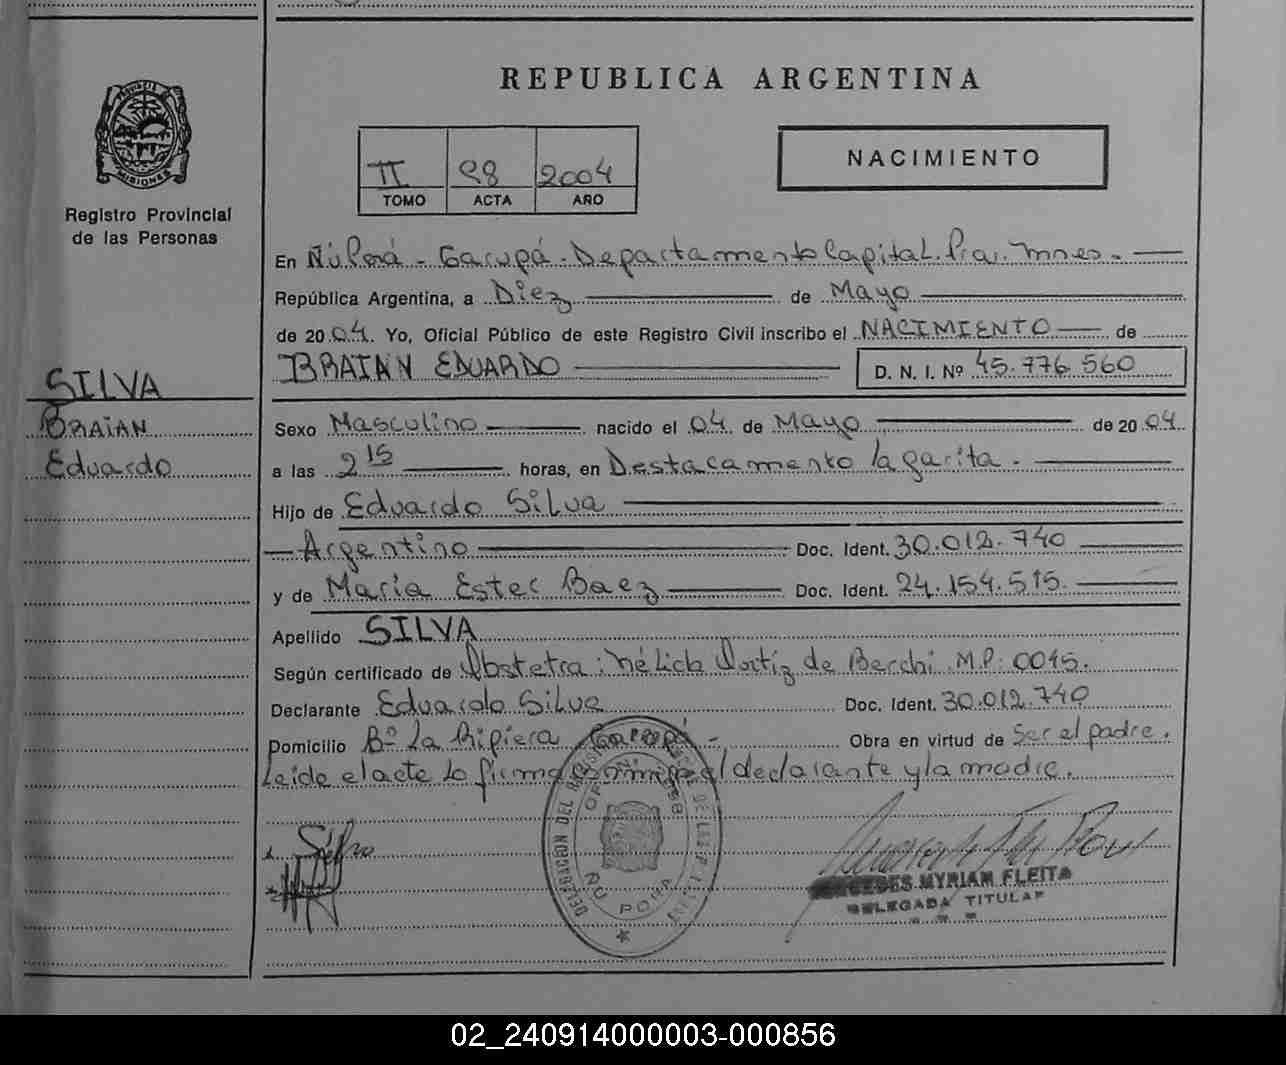 REPUBLICA ARGENTINA
PROVINCIA DE
MISIONES
Registro Provincial
de las Personas
II 98 2004
TOMO ACTA AÑO
NACIMIENTO
En Ñu Porá - Garupá - Departamento Capital. Pcia. Mnes. -
República Argentina, a Diez de Mayo
de 2004. Yo, Oficial Público de este Registro Civil inscribo el NACIMIENTO de
BRAIAN EDUARDO D. N. I. Nº 45.776.560
SILVA
BRAIAN
Eduardo
Sexo Masculino nacido el 04 de Mayo de 2004
a las 2 15 horas, en Destacamento la garita.
Hijo de Eduardo Silva
Argentino Doc. Ident. 30.012.740
y de Maria Ester Baez Doc. Ident. 24.154.515.
Apellido SILVA
Según certificado de Obstetra: Nélida Ortiz de Becchi M.P: 0045.
Declarante Eduardo Silva Doc. Ident. 30.012.740
Domicilio Bº La Ripiera Garupá - Obra en virtud de ser el padre.
Leida el acta la firma conmigo el declarante y la madre.
DELEGACION DEL REGISTRO DE LAS PERSONAS
ÑU PORA
Silva
MERCEDES MYRIAM FLEITA
DELEGADA TITULAR
02_240914000003-000856